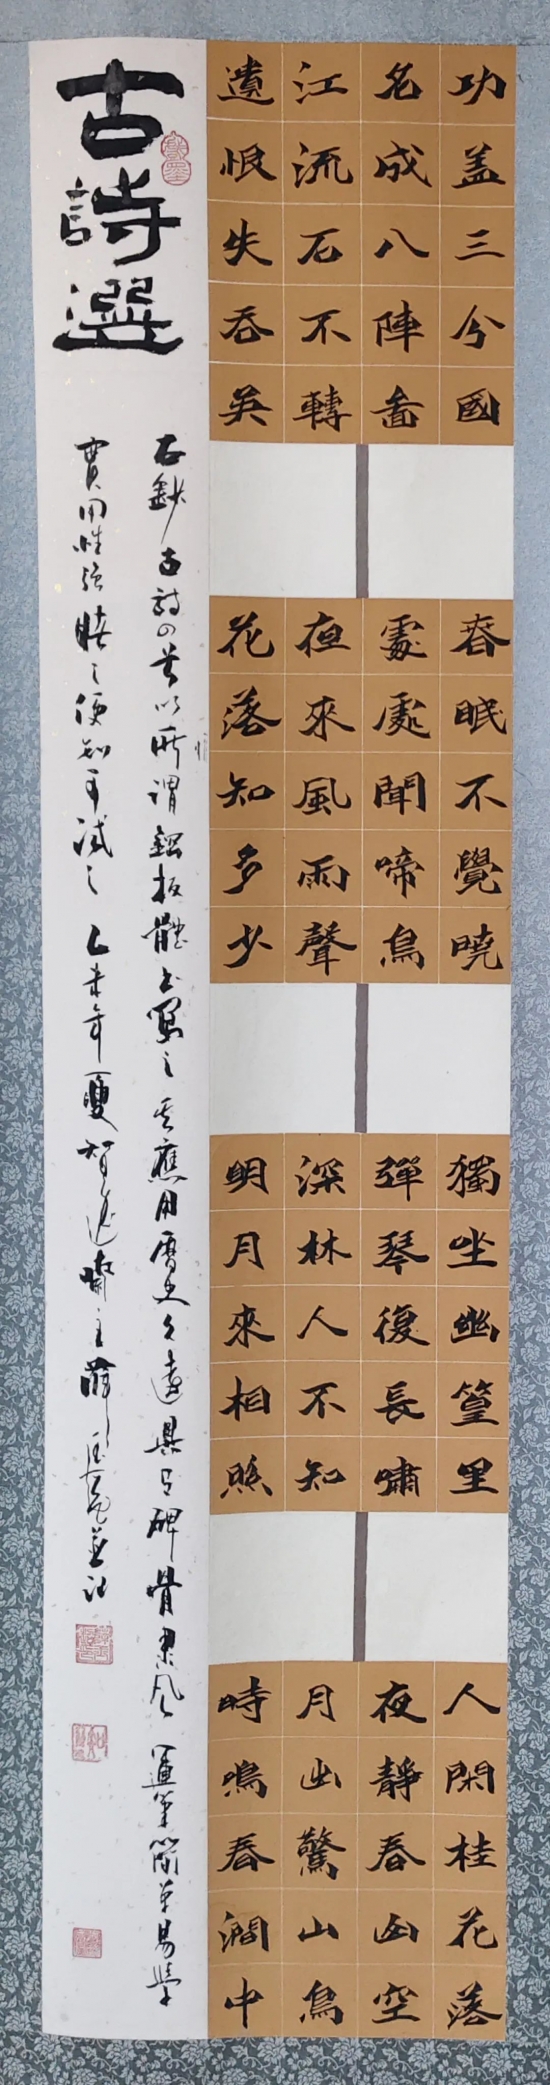 功蓋三分國
名成八陣圖
江流石不轉
遺恨失吞吳
春眠不覺曉
處處聞啼鳥
夜來風雨聲
花落知多少
獨坐幽篁里
彈琴復長嘯
深林人不知
明月來相照
人閑桂花落
夜靜春山空
月出驚山鳥
時鳴春澗中
古詩選
右錄古詩四首以所謂鋼板體書寫之其應用歷史久遠具有碑骨帖風運筆簡單易學
實用性強 之便知可試之乙未年夏